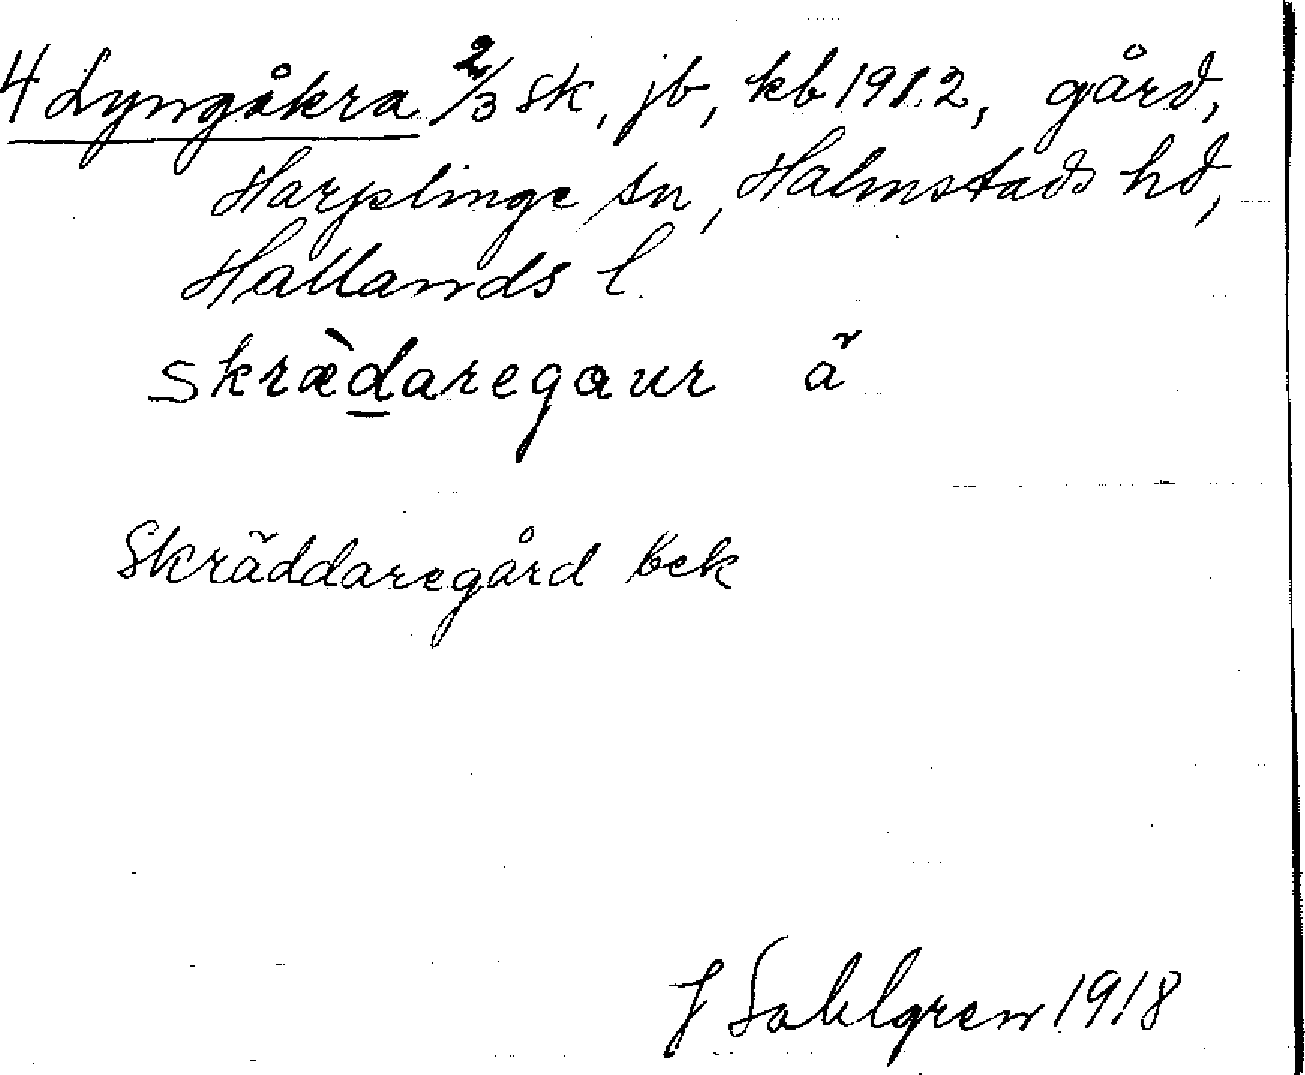 4 Lyngåkra 2/3 sk, jb, kb 1912, gård,
Harplinge sn, Halmstads hd,
Hallands l.
skræ̀daregaur ä
Skräddaregård bek
J Sahlgren 1918